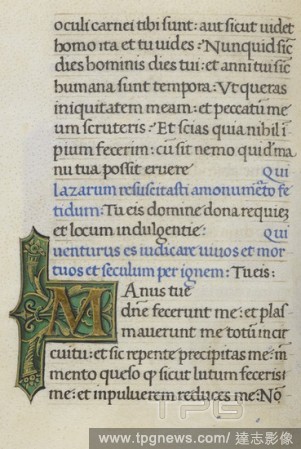 oculi carnei tibi sunt: aut sicut uidet
homo ita et tu uides: Nunquid sic
dies hominis dies tui: et anni tui sic
humana sunt tempora: Ut queras
iniquitatem meam: et peccatũ me
um scruteris: Et scias quia nihil ĩ
pium fecerim: cũ sit nemo qui d̃ ma
nu tua possit eruere Qui
lazarum resuscitasti a monumẽto fe
tidum: Tu eis domine dona requiẽ
et locum indulgentie: Qui
uenturus es iudicare uiuos et mor
tuos et seculum per ignem: Tu eis:
MAnus tue
dñe fecerunt me: et plas
mauerunt me totũ in cir
cuitu: et sic repente precipitas me: me
mento queso ꝙ sicut lutum feceris
me: et in puluerem reduces me: Nõ
TPG
www.tpgnews.com / 達志影像